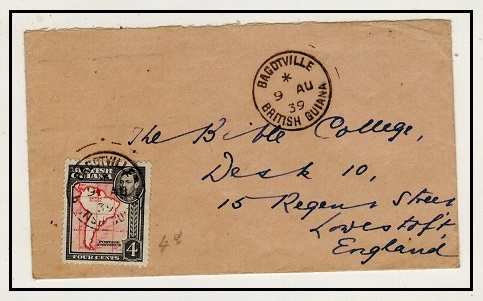 BAGOTVILLE
*
9 AU
39
BRITISH GUIANA
The Bible College,
Desk 10,
15 Regent Street
Lowestoft
England
BAGOTVILLE
9 AU
39
BRITISH
GUIANA
POSTAGE
4
FOUR CENTS
4d